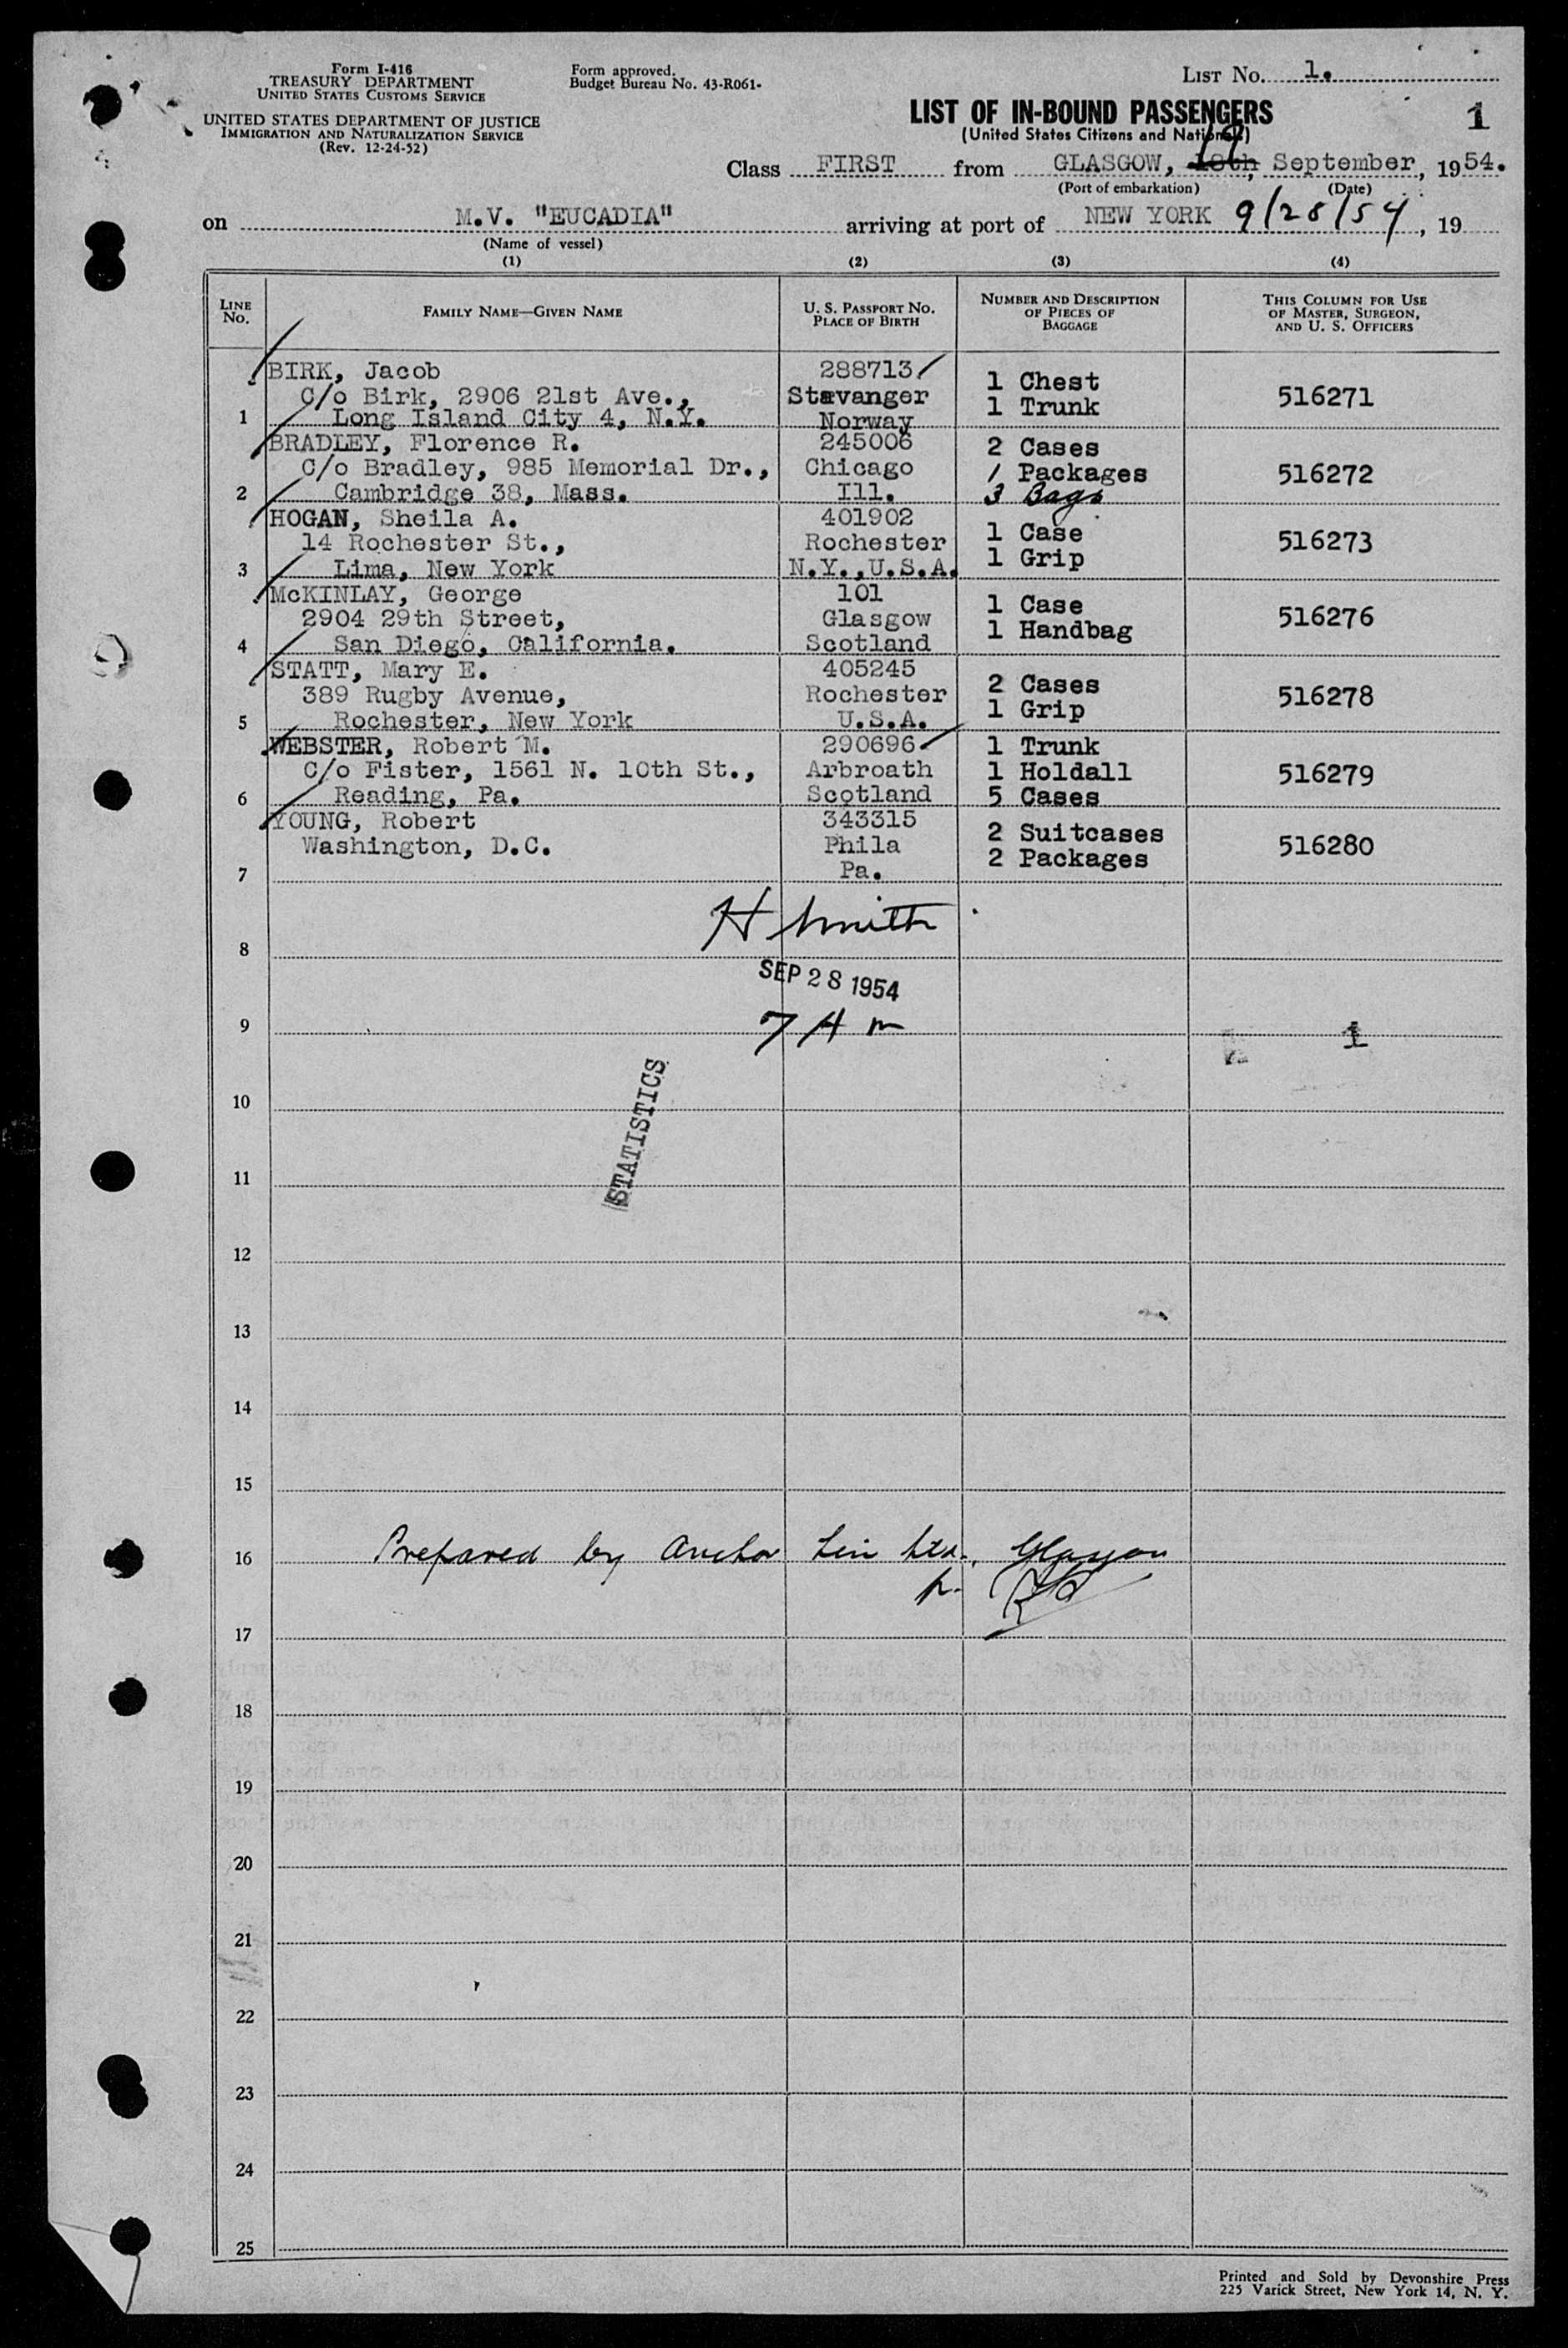 Form I-416
TREASURY DEPARTMENT
UNITED STATES CUSTOMS SERVICE
UNITED STATES DEPARTMENT OF JUSTICE
IMMIGRATION AND NATURALIZATION SERVICE
(Rev. 12-24-52)
Form approved.
Budget Bureau No. 43-R061-
LIST NO. 1.
LIST OF IN-BOUND PASSENGERS
(United States Citizens and Nationals)
1
Class FIRST from GLASGOW, 18th, 19 September, 1954.
(Port of embarkation) (Date)
on M.V. "EUCADIA" arriving at port of NEW YORK 9/28/54, 19
(Name of vessel)
(1) (2) (3) (4)
LINE NO. FAMILY NAME—GIVEN NAME U. S. PASSPORT NO. PLACE OF BIRTH NUMBER AND DESCRIPTION OF PIECES OF BAGGAGE THIS COLUMN FOR USE OF MASTER, SURGEON, AND U. S. OFFICERS
BIRK, Jacob 288713
C/o Birk, 2906 21st Ave., Stavanger 1 Chest 516271
1 Long Island City 4, N.Y. Norway 1 Trunk
BRADLEY, Florence R. 245006 2 Cases
C/o Bradley, 985 Memorial Dr., Chicago 1 Packages 516272
2 Cambridge 38, Mass. Ill. 3 Bags
HOGAN, Sheila A. 401902
14 Rochester St., Rochester 1 Case 516273
3 Lima, New York N.Y.,U.S.A. 1 Grip
McKINLAY, George 101
2904 29th Street, Glasgow 1 Case 516276
4 San Diego, California. Scotland 1 Handbag
STATT, Mary E. 405245
389 Rugby Avenue, Rochester 2 Cases 516278
5 Rochester, New York U.S.A. 1 Grip
WEBSTER, Robert M. 290696 1 Trunk
C/o Fister, 1561 N. 10th St., Arbroath 1 Holdall 516279
6 Reading, Pa. Scotland 5 Cases
YOUNG, Robert 343315
Washington, D.C. Phila 2 Suitcases 516280
7 Pa. 2 Packages
H Smith
8
SEP 28 1954
9 7 AM 1
STATISTICS
10
11
12
13
14
15
16 Prepared by Anchor Line Ltd., Glasgow
p.
17
18
19
20
21
22
23
24
25
Printed and Sold by Devonshire Press
225 Varick Street, New York 14, N. Y.